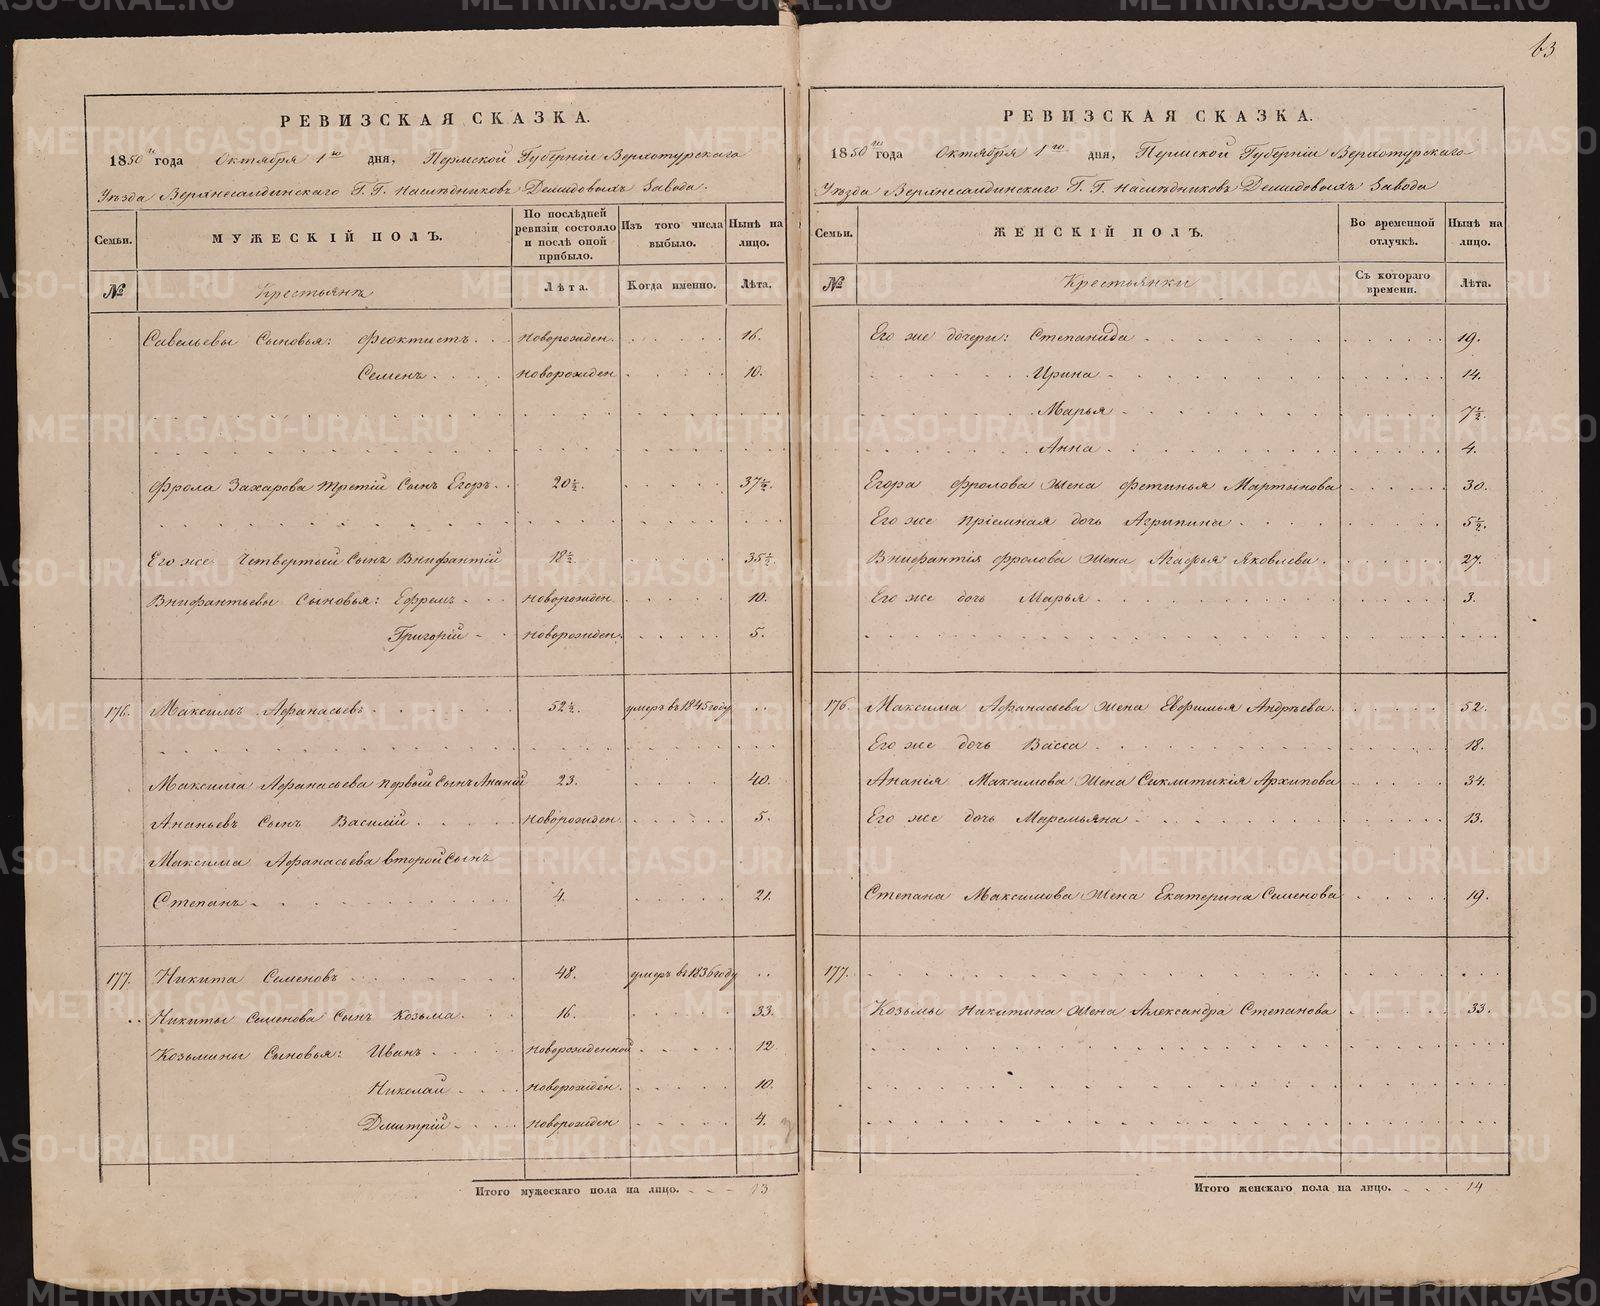 63
РЕВИЗСКАЯ СКАЗКА.
1850го года Октября 1го дня, Пермской Губерніи Верхотурскаго
Уѣзда Верхнесалдинскаго Г. Г. Наслѣдниковъ Демидовыхъ Завода.
Семьи. МУЖЕСКІЙ ПОЛЪ. По послѣдней ревизіи состояло и послѣ оной прибыло. Изъ того числа выбыло. Нынѣ на лицо.
№ Крестьянъ Лѣта. Когда именно. Лѣта.
Савельевы Сыновья: Феоктистъ новорожден. 16.
Семенъ новорожден 10.
Фрола Захарова третій Сынъ Егоръ 20½. 37½.
Его же Четвертый Сынъ Внифантій 18½. 35½.
Внифантьевы Сыновья: Ефремъ новорожден 10.
Григорій новорожден. 5.
176. Максимъ Афанасьевъ 52½. умеръ въ 1845 году
Максима Афанасьева первый Сынъ Ананій 23. 40.
Ананьевъ Сынъ Василій новорожден. 5.
Максима Афанасьева второй Сынъ
Степанъ 4. 21.
177. Никита Семеновъ 48. умеръ въ 1836 году
Никиты Семенова Сынъ Козьма 16. 33.
Козьмины Сыновья: Иванъ новорожденной 12.
Николай новорожден. 10.
Дмитрій новорожден 4.
Итого мужескаго пола на лицо. 13
РЕВИЗСКАЯ СКАЗКА.
1850го года Октября 1го дня, Пермской Губерніи Верхотурскаго
Уѣзда Верхнесалдинскаго Г. Г. Наслѣдниковъ Демидовыхъ Завода
Семьи. ЖЕНСКІЙ ПОЛЪ. Во временной отлучкѣ. Нынѣ на лицо.
№ Крестьянки Съ котораго времени. Лѣта.
Его же дочери: Степанида 19.
Ирина 14.
Марья 7½.
Анна 4.
Егора Фролова жена Фетинья Мартынова 30.
Его же пріемная дочь Агрипина 5½.
Внифантія Фролова жена Агафья Яковлева 27.
Его же дочь Марья 3.
176. Максима Афанасьева жена Евфимья Андрѣева 52.
Его же дочь Васса 18.
Ананія Максимова жена Сиклитикія Архипова 34.
Его же дочь Маремьяна 13.
Степана Максимова жена Екатерина Семенова 19.
177.
Козьмы Никитина жена Александра Степанова 33.
Итого женскаго пола на лицо. 14
METRIKI.GASO-URAL.RU